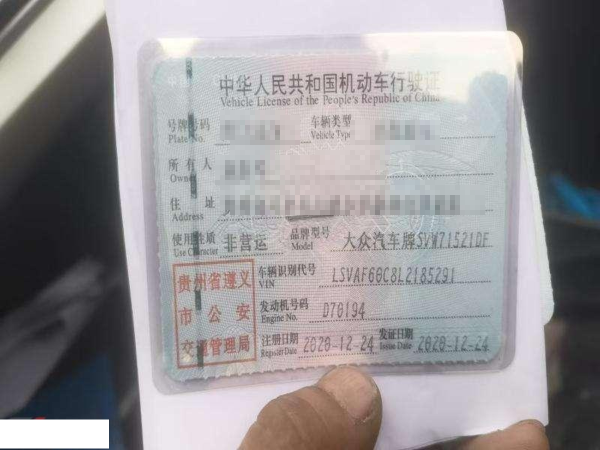 中华人民共和国机动车行驶证
Vehicle License of the People's Republic of China
号牌号码
Plate No.
车辆类型
Vehicle Type
所有人
Owner
住址
Address
使用性质
Use Character
非营运
品牌型号
Model
大众汽车牌SVW71521DF
贵州省遵义
市公安
交通管理局
车辆识别代号
VIN
LSVAF60C8L2185291
发动机号码
Engine No.
D70194
注册日期
Register Date
2020-12-24
发证日期
Issue Date
2020-12-24